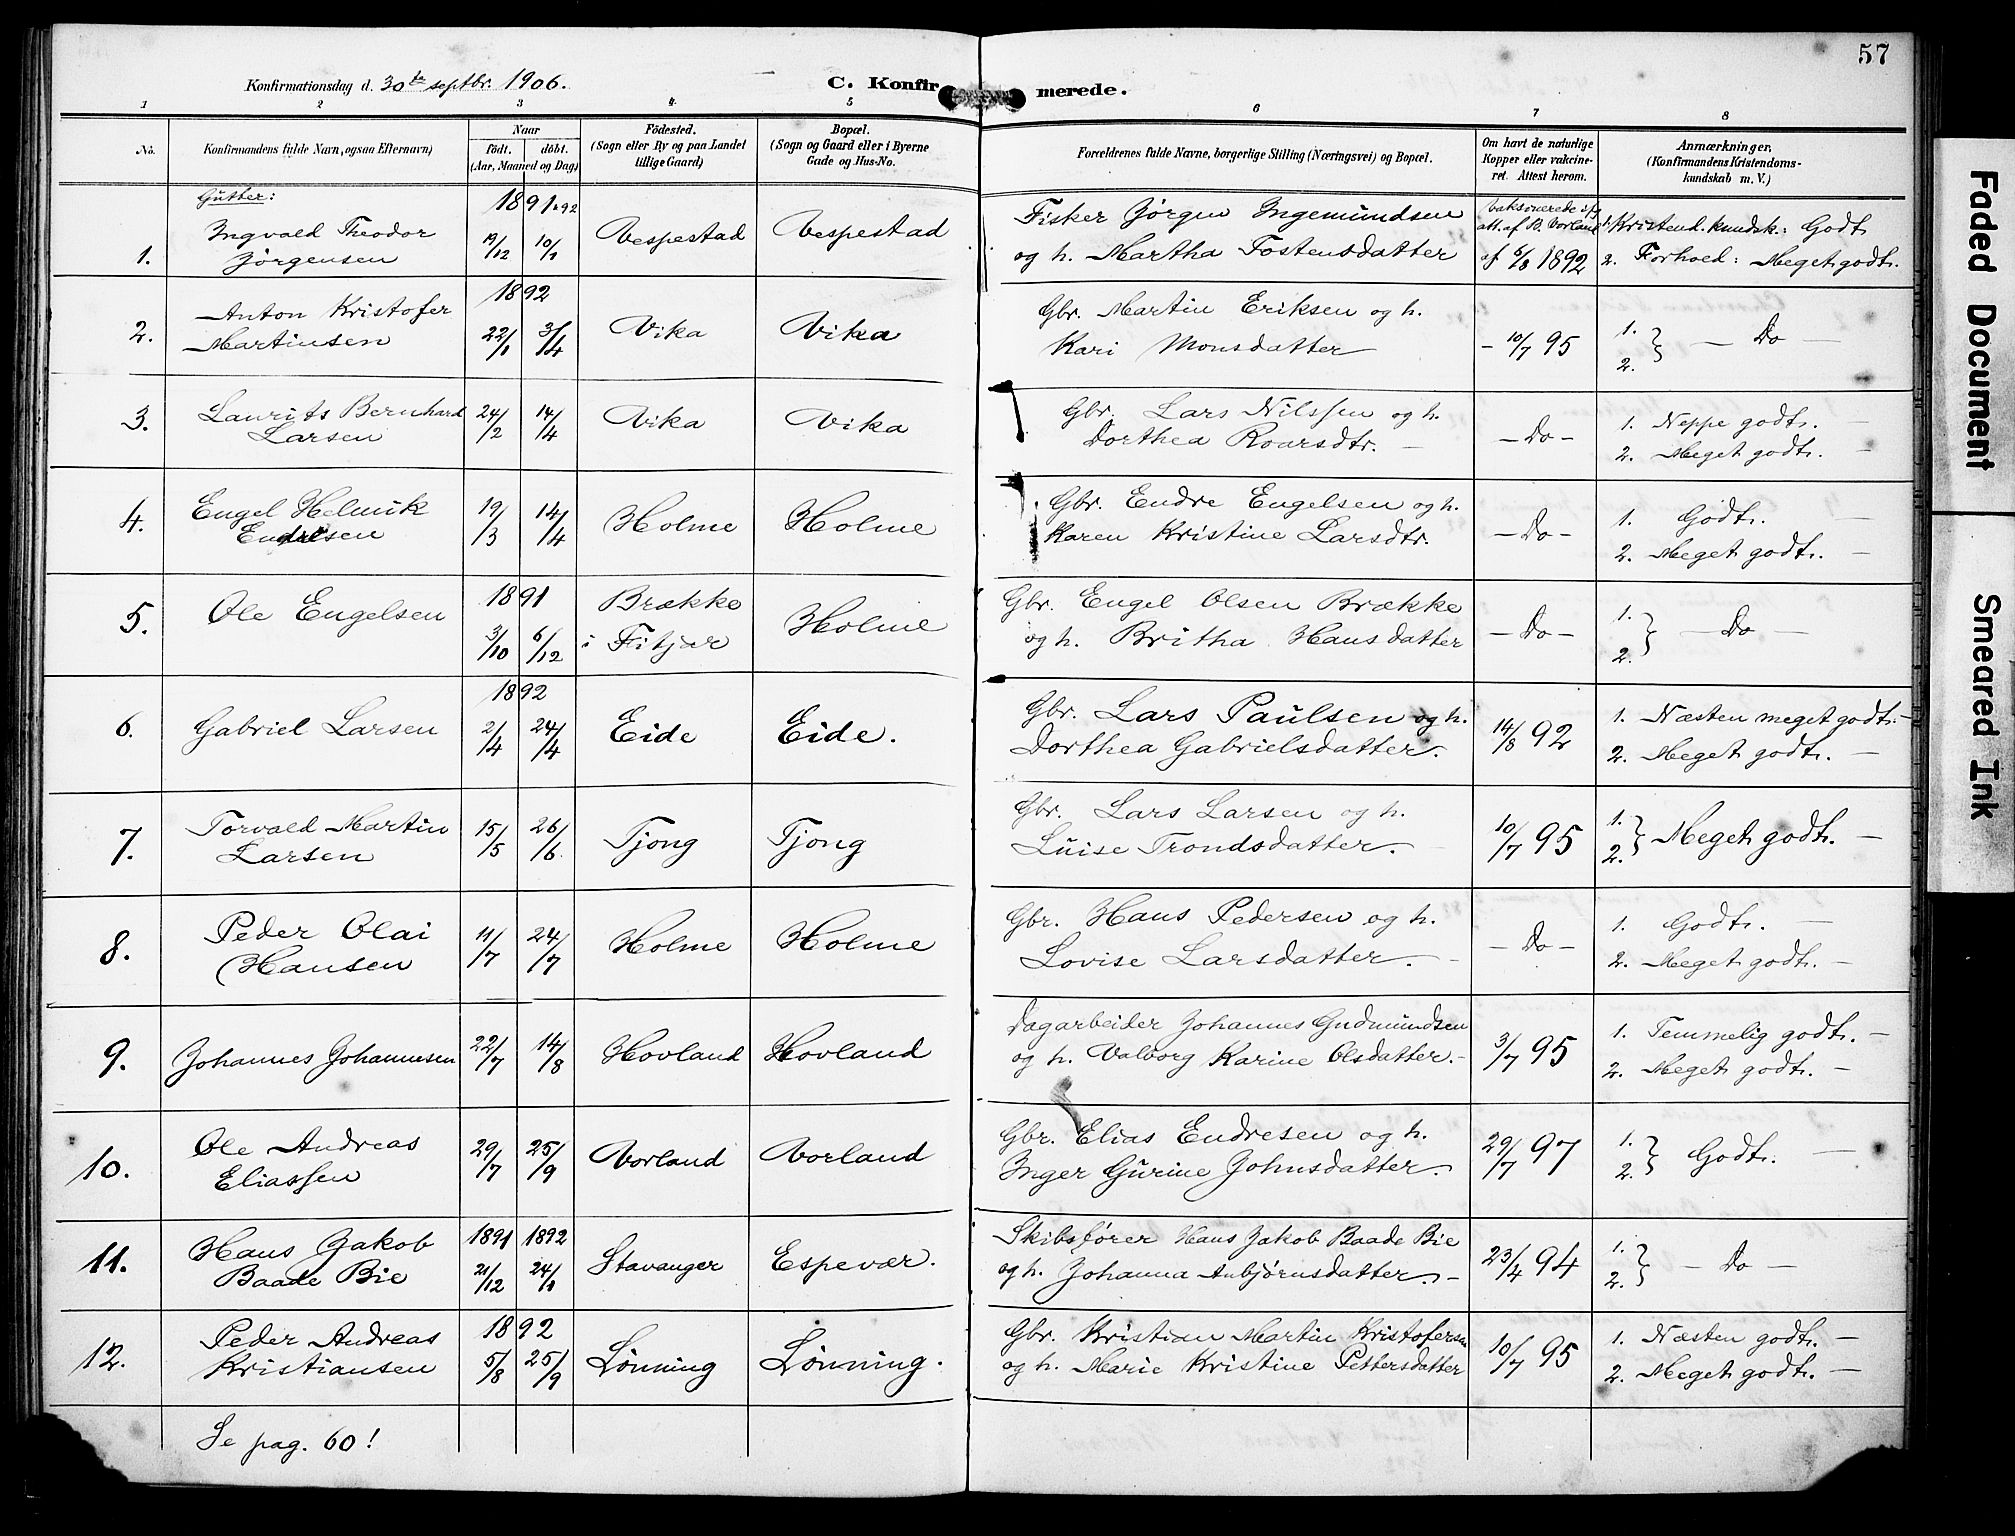 57
Konfirmationsdag d. 30te septbr. 1906.
C. Konfirmerede.
1 2 3 4 5 6 7 8
No.
Konfirmandens fulde Navn, ogsaa Efternavn)
Naar
födt. döbt.
(Aar, Maaned og Dag)
Födested.
(Sogn eller By og paa Landet
tillige Gaard)
Bopæl.
(Sogn og Gaard eller i Byerne
Gade og Hus-No.
Forældrenes fulde Navne, borgerlige Stilling (Næringsvei) og Bopæl.
Om havt de naturlige
Kopper eller vakcine-
ret. Attest herom.
Anmærkninger.
(Konfirmandens Kristendoms-
kundskab m. V.)
Gutter:
1. Ingvald Theodor
Jörgensen
1891 & 92
19/12 10/1
Vespestad
Vespestad
Fisker Jörgen Ingemundsen
og h. Martha Tostensdatter
Vaksinerede ifg.
att. af B. Vorland
af 6/8 1892
1. Kristend. kundsk: Godt
2. Forhold: Meget godt.
2. Anton Kristofer
Martinsen
1892
22/1 3/4
Vika
Vika
Gbr. Martin Eriksen og h.
Kari Monsdatter
- 10/7 95
1. } - Do -
2.
3. Laurits Bernhard
Larsen
24/2 14/4
Vika
Vika
Gbr. Lars Nilssen og h.
Dorthea Roarsdtr. -
- Do -
1. Neppe godt. -
2. Meget godt. -
4. Engel Helmik
Endresen
19/3 14/4
Holme
Holme
Gbr. Endre Engelsen og h.
Karen Kristine Larsdtr.
- Do -
1. Godt.
2. Meget godt. -
5. Ole Engelsen
1891
3/10 6/12
Brække
i Fitjar
Holme
Gbr. Engel Olsen Brække
og h. Britha Hansdatter
- Do -
1. } - Do -
2.
6. Gabriel Larsen
1892
2/4 24/4
Eide
Eide.
Gbr. Lars Paulsen og h.
Dorthea Gabrielsdatter.
14/8 92
1. Næsten meget godt. -
2. Meget godt. -
7. Torvald Martin
Larsen
15/5 26/6.
Tjong
Tjong
Gbr. Lars Larsen og h.
Luise Trondsdatter. -
10/7 95
1. } Meget godt. -
2.
8. Peder Olai
Hansen
11/7 24/7
Holme
Holme
Gbr. Hans Pedersen og h.
Lovise Larsdatter. -
- Do -
1. Godt. -
2. Meget godt. -
9. Johannes Johannesen
22/7 14/8
Hovland
Hovland
Dagarbeider Johannes Gudmundsen
og h. Valborg Karine Olsdatter. -
3/7 95
1. Temmelig godt. -
2. Meget godt. -
10. Ole Andreas
Eliassen
29/7 25/9
Vorland
Vorland
Gbr. Elias Endresen og h.
Inger Gurine Johnsdatter.
29/7 97
1. } Godt. -
2.
11. Hans Jakob
Baade Bie
1891 1892
21/12 24/1
Stavanger
Espevær.
Skibsfører Hans Jakob Baade Bie
og h. Johanna Anbjørnsdatter. -
23/4 94
1. } - Do -
2.
12. Peder Andreas
Kristiansen
1892
5/8 25/9
Lönning
Lönning.
Gbr. Kristian Martin Kristofersen
og h. Marie Kristine Pettersdatter
10/7 95
1. Næsten godt. -
2. Meget godt. -
Se pag. 60!
Faded Document
Smeared Ink